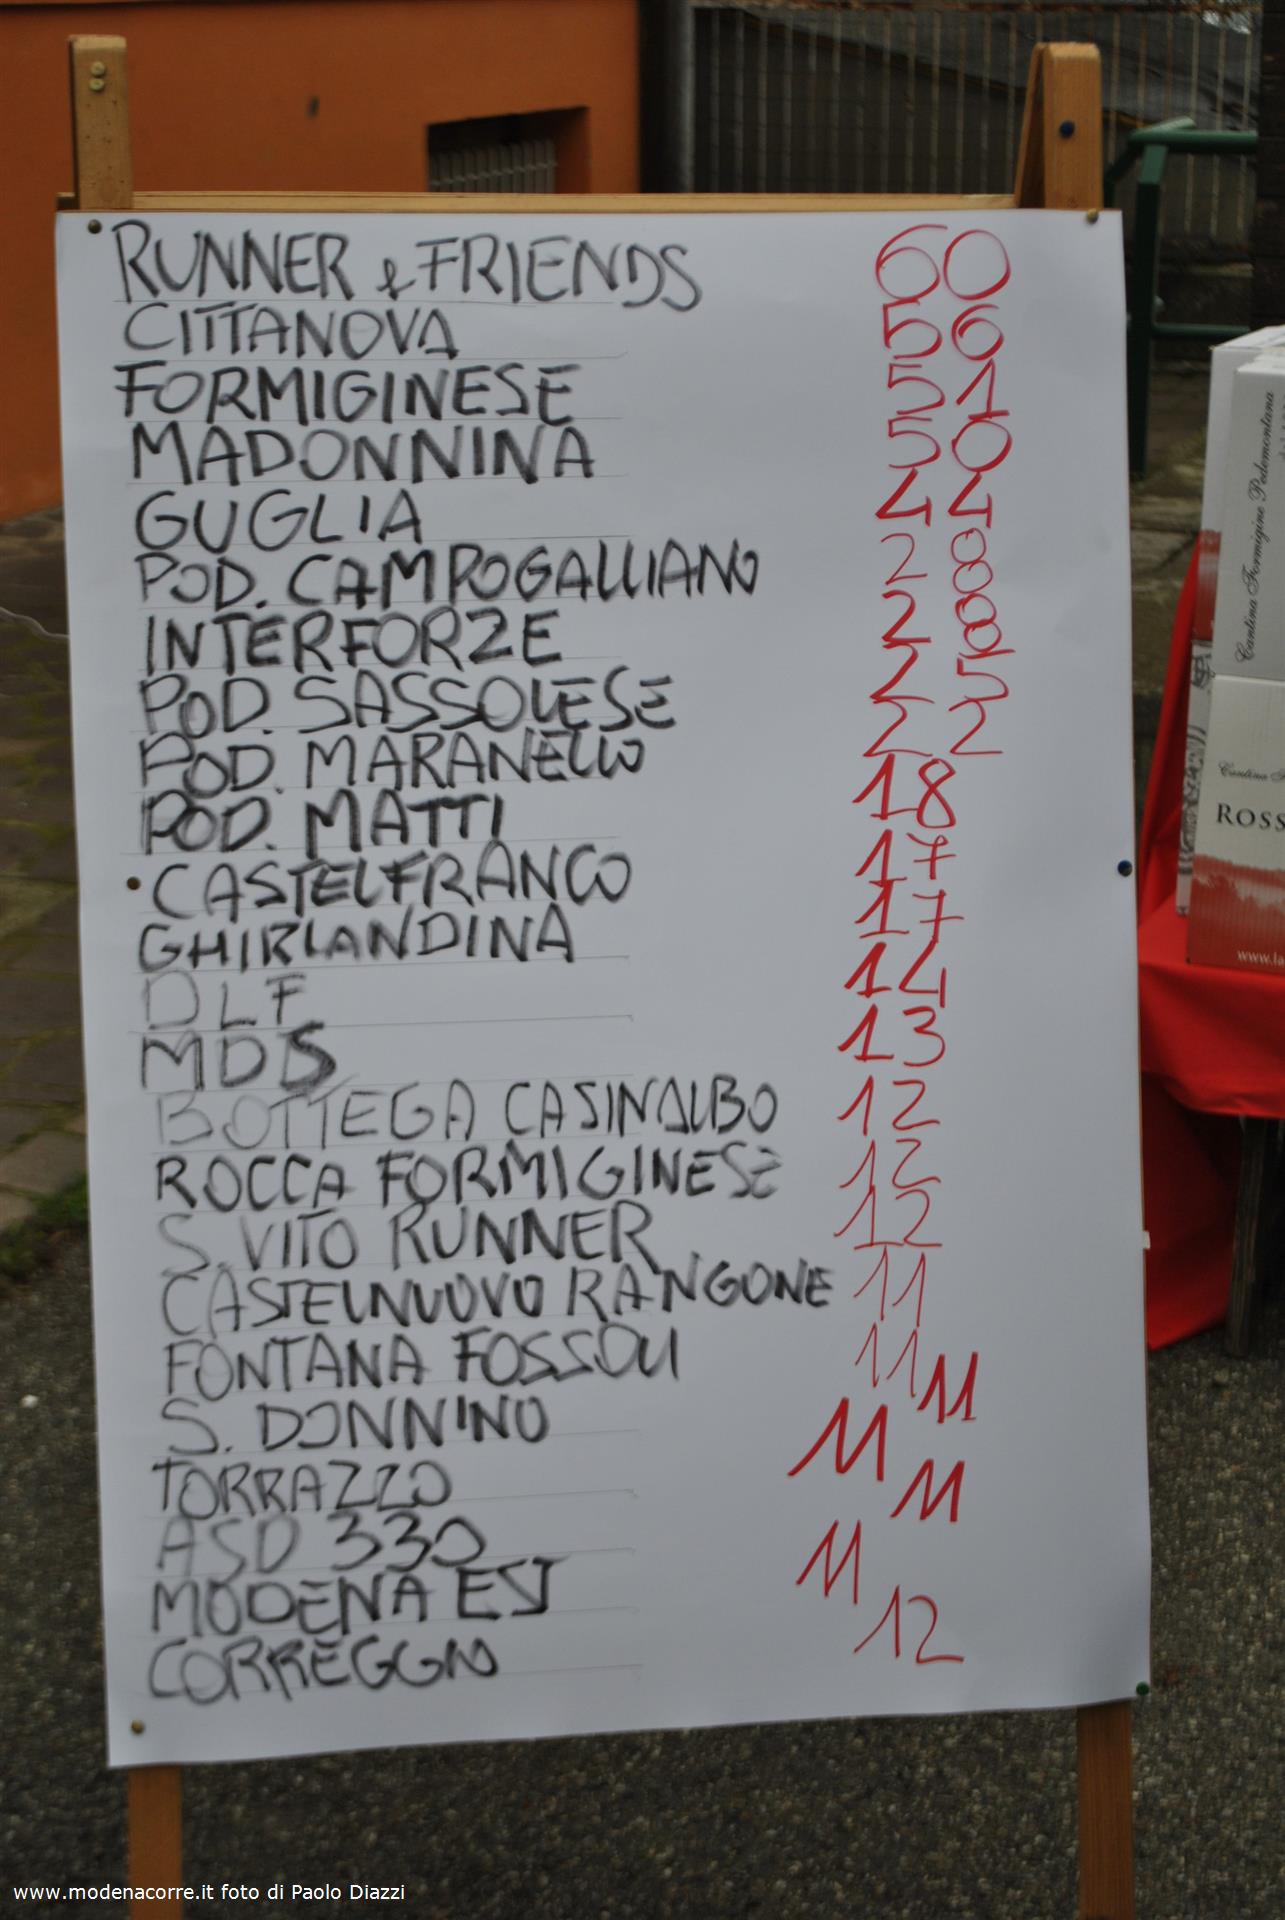 RUNNER & FRIENDS 60
CITTANOVA 56
FORMIGINESE 51
MADONNINA 50
GUGLIA 44
POD. CAMPOGALLIANO 28
INTERFORZE 28
POD. SASSOLESE 25
POD. MARANELLO 22
POD. MATTI 18
CASTELFRANCO 17
GHIRLANDINA 17
DLF 14
MDS 13
BOTTEGA CASINALBO 12
ROCCA FORMIGINESE 12
S. VITO RUNNER 12
CASTELNUOVO RANGONE 11
FONTANA FOSSOLI 11
S. DONNINO 11
TORRAZZO 11
ASD 330 11
MODENA EST 11
CORREGGIO 12
Cantina Formigine Pedemontana
Cantina
ROSS
www.la
www.modenacorre.it foto di Paolo Diazzi